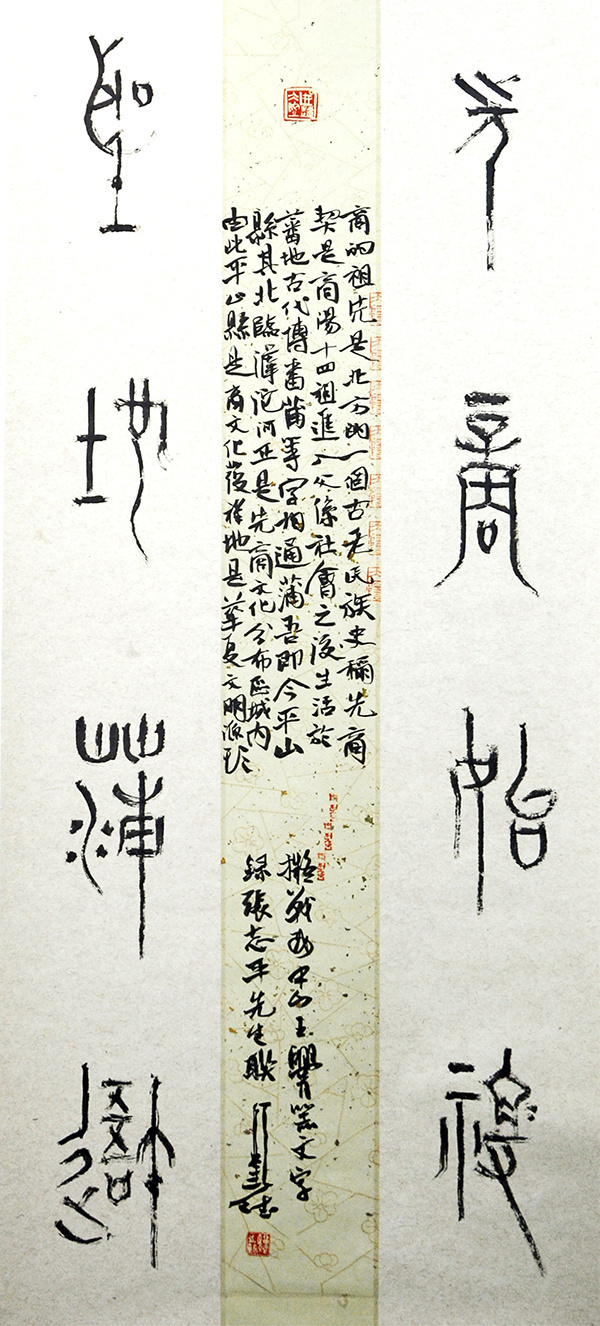 先商始祖
商的祖先是北方的一個古老民族史稱先商
契是商湯十四祖進入父係社會之後生活於
蕃地古代博蕃蒲等字相通蒲吾即今平山
縣其北臨滹沱河正是先商文化分布區域内
由此平山縣是商文化發祥地是華夏文明源頭
擬戰國中山王譽器文字
錄張志平先生聯
聖地蒲吾